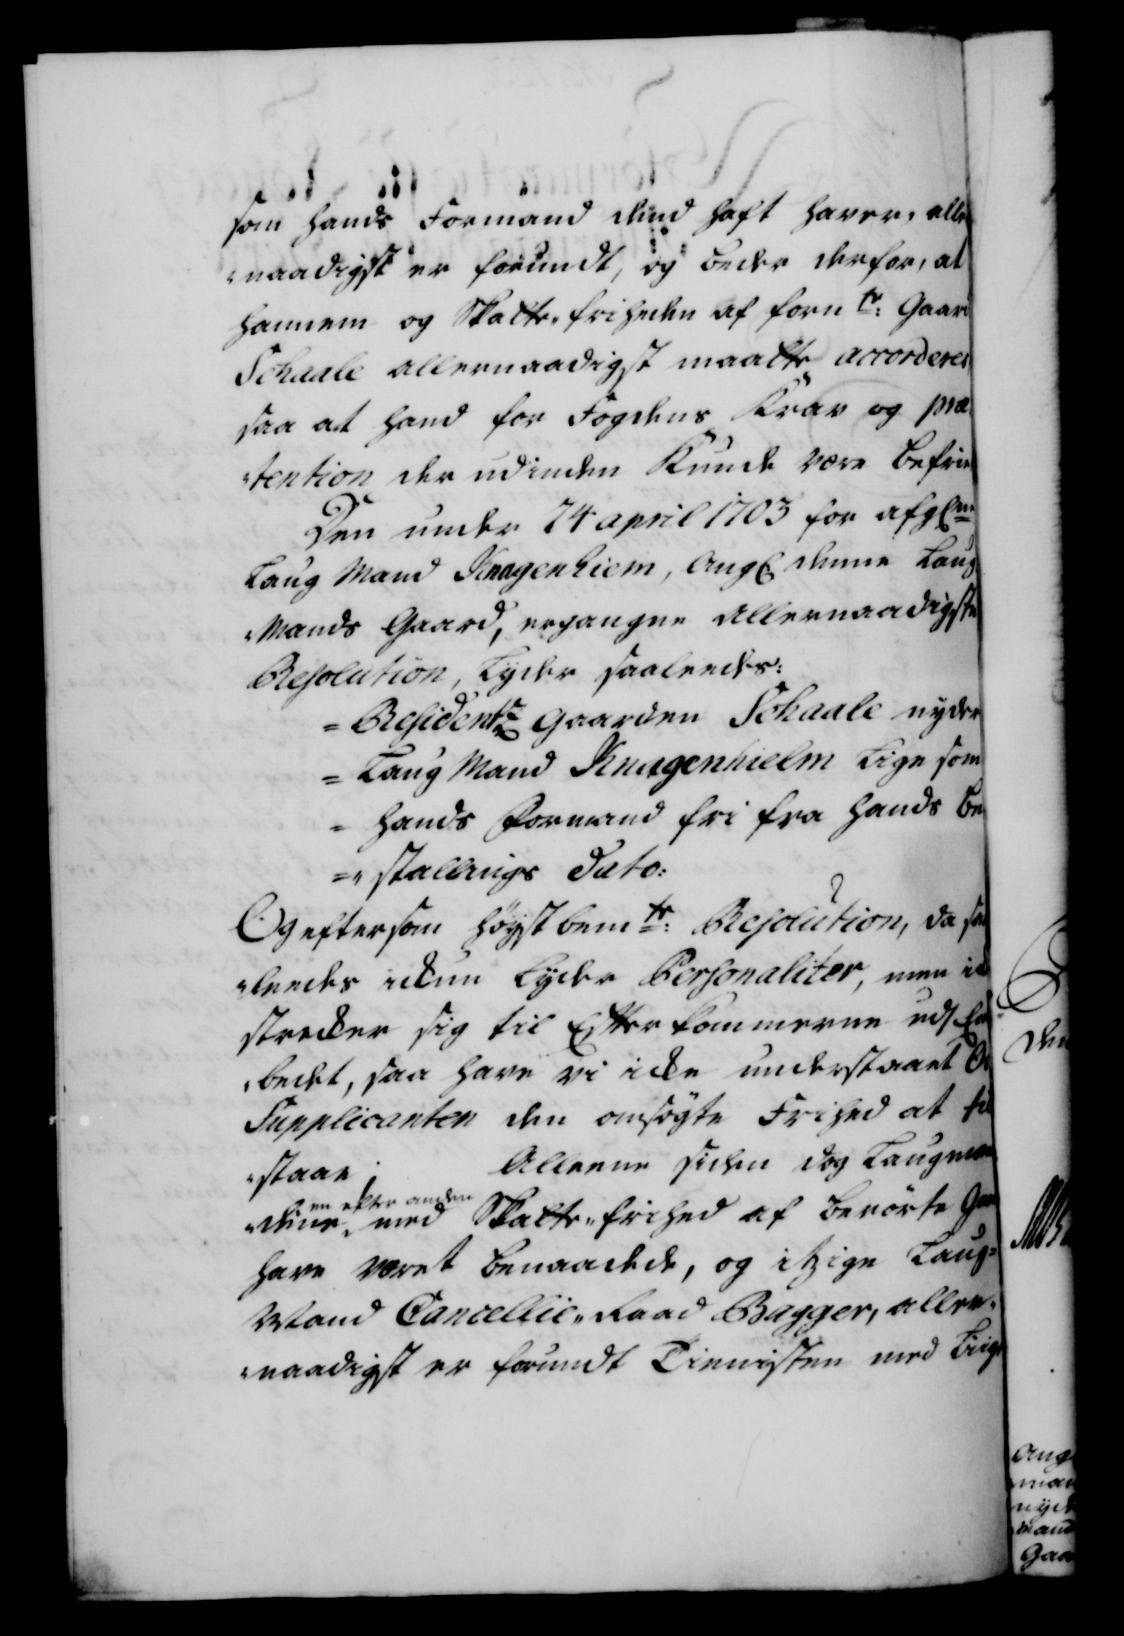 som hands Formand dend haft haver, aller
naadigst er forundt, og beder derfor, at
hannem og Skatte-friheden af forn te: Gaard
Schaale allernaadigst maatte accorderes
saa at hand for Fogdens Krav og præ
tention der udinden Kunde være befriet
Den under 24 april 1703 for afg
Laug Mand Knagenhiem, ang denne Laug
Mands Gaard, ergangne Allernaadigste
Resolution, Lyder saaleedes:
= Residentz gaarden Schaale nyder
= Laug Mand Knagenhielm Lige som
= hands Formand fri fra hands Be
= stallings Dato:
Og eftersom høystbem te: Resolution, da saa
leedes ickun Lyder Personaliter, men
strecker sig til Efterkommerne
bedet, saa have vi icke understaaet
Supplicanten den omsøgte Frihed at til
staae. Alleene siden dog Laugmæn
dene en efter anden med Skatte-frihed af berørte
have været benaadede, og itzige Laug=
Mand Cancellie-Raad Bagger, aller
naadigst er forundt Tienisten med Liige